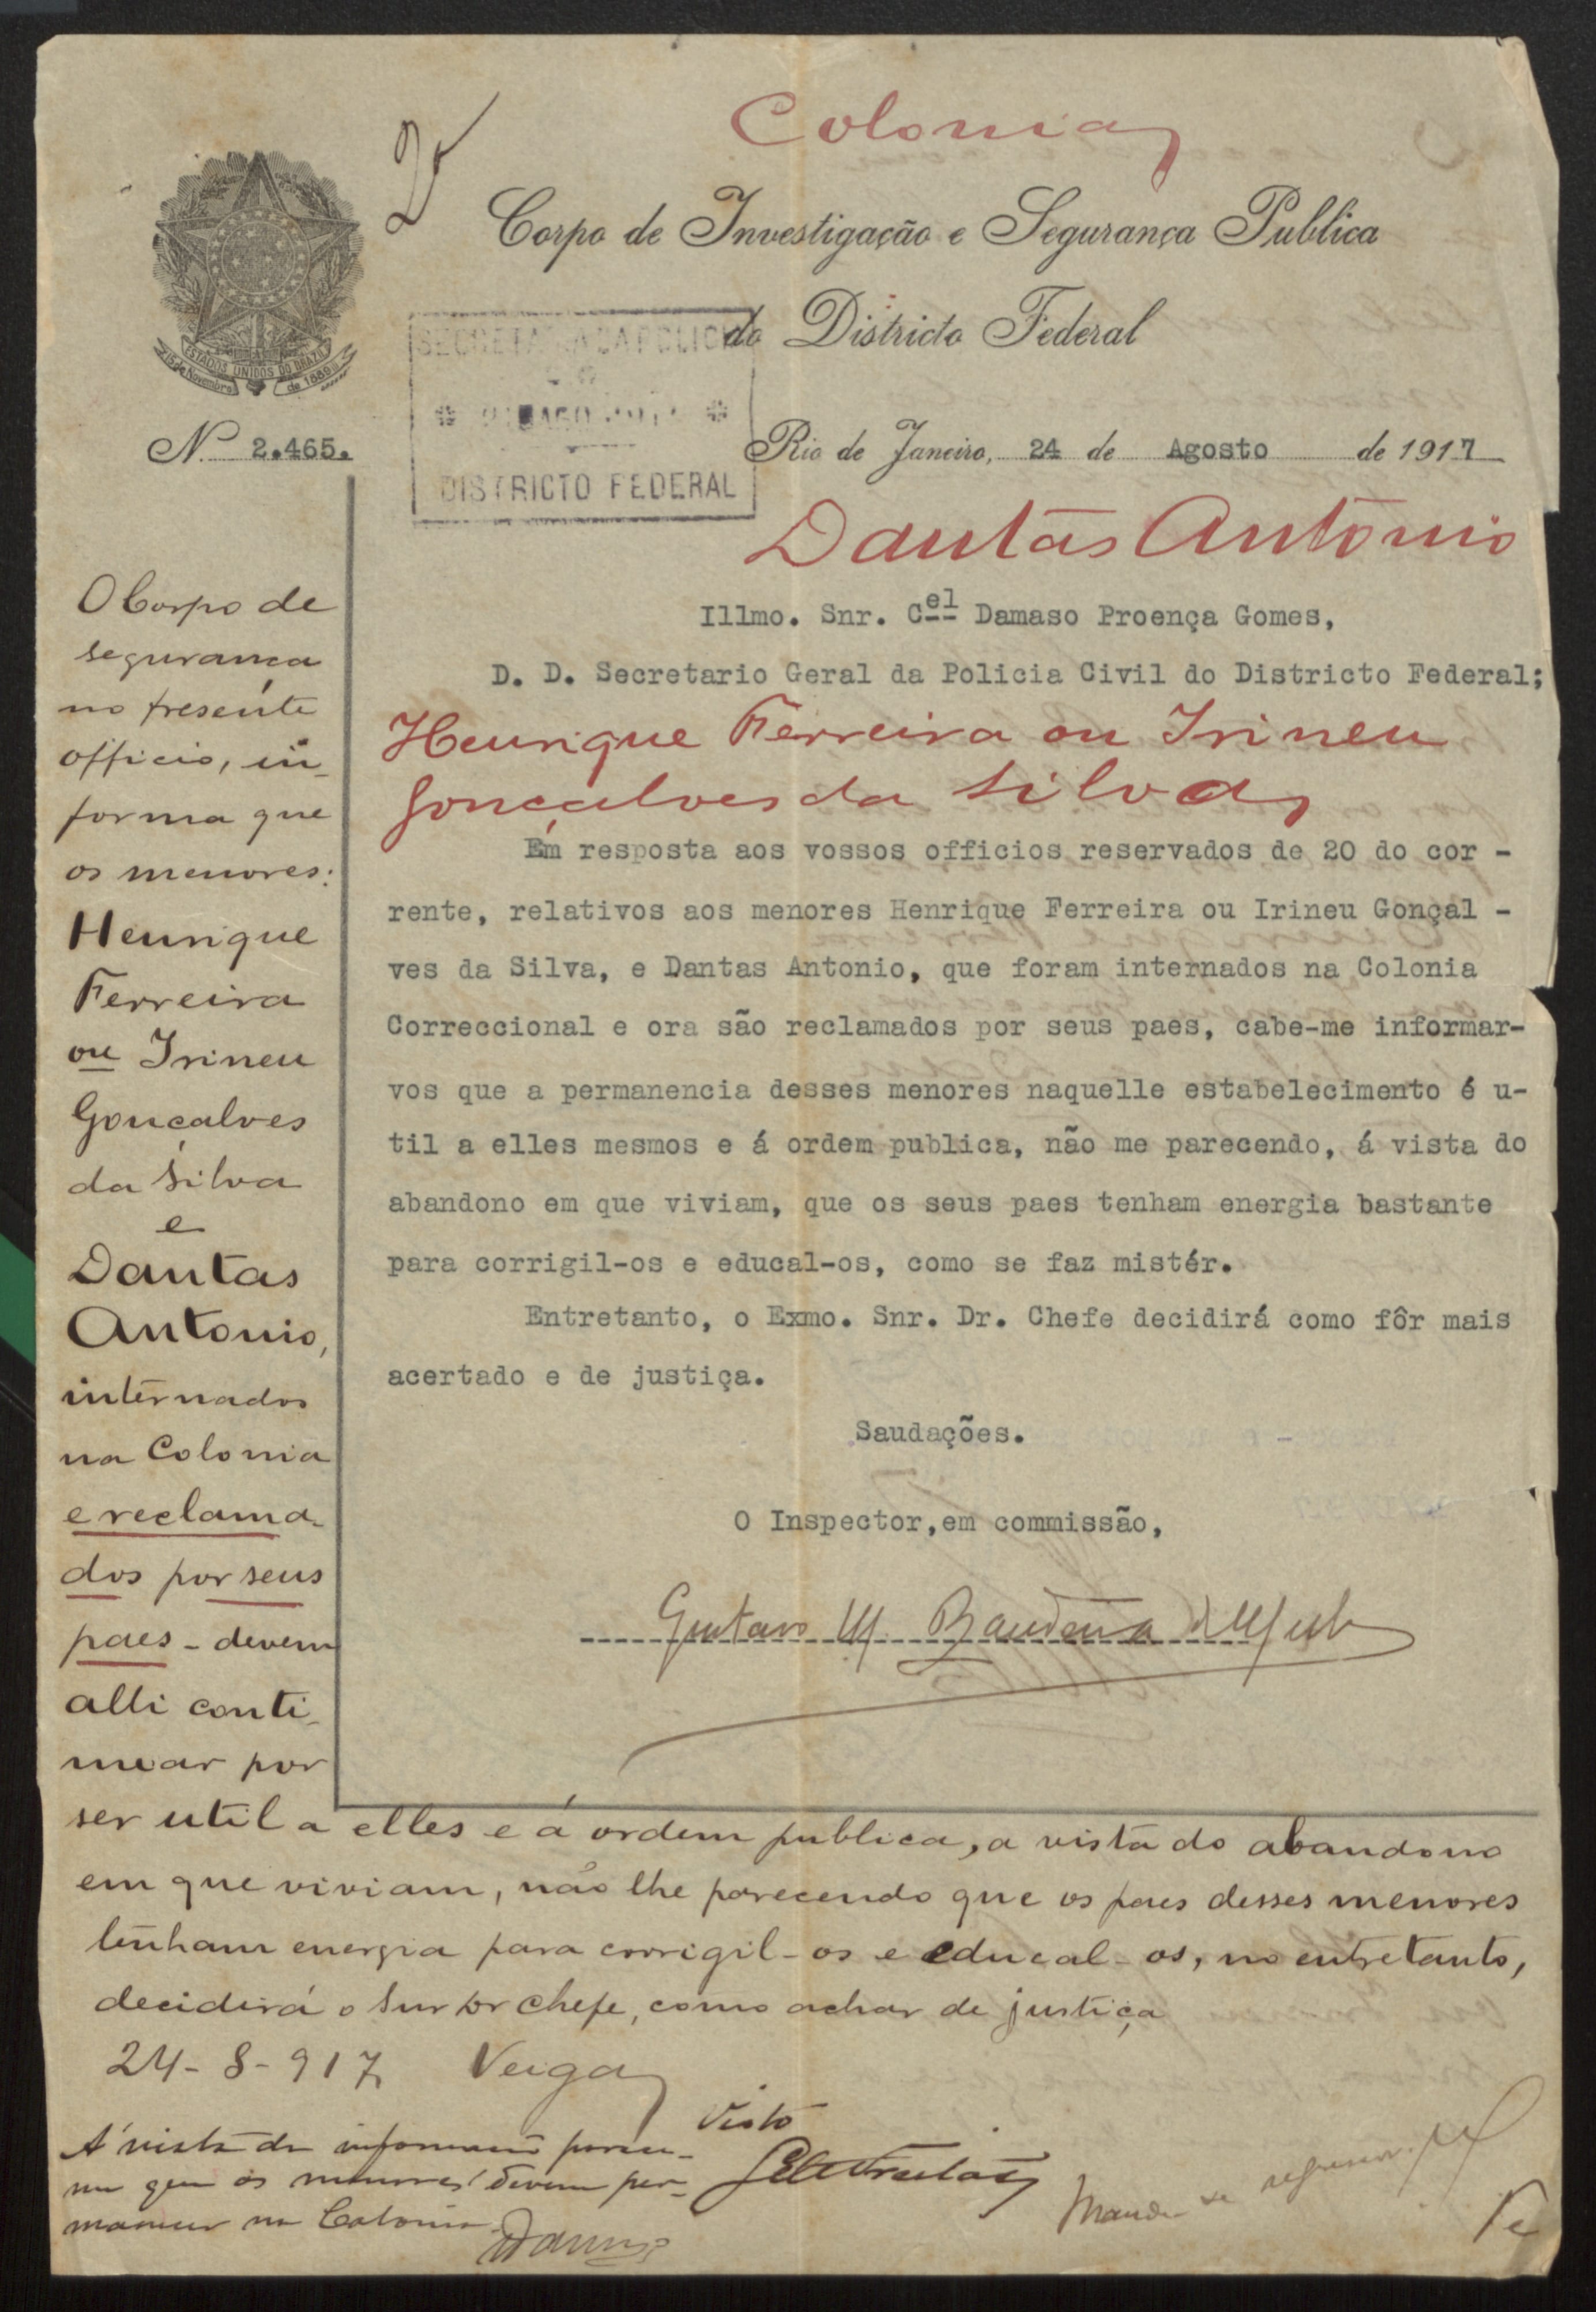 Colonia
Corpo de Investigação e Segurança Publica
do Districto Federal
ESTADOS UNIDOS DO BRAZIL
15 de Novembro de 1889
SECRETARIA DA POLICIA
AGO
DISTRICTO FEDERAL
N. 2.465.
Rio de Janeiro, 24 de Agosto de 1917
Dantas Antonio
Illmo. Snr. Cel Damaso Proença Gomes,
D. D. Secretario Geral da Policia Civil do Districto Federal;
Henrique Ferreira ou Irineu
Gonçalves da Silva
Em resposta aos vossos officios reservados de 20 do cor -
rente, relativos aos menores Henrique Ferreira ou Irineu Gonçal -
ves da Silva, e Dantas Antonio, que foram internados na Colonia
Correccional e ora são reclamados por seus paes, cabe-me informar-
vos que a permanencia desses menores naquelle estabelecimento é u-
til a elles mesmos e á ordem publica, não me parecendo, á vista do
abandono em que viviam, que os seus paes tenham energia bastante
para corrigil-os e educal-os, como se faz mistér.
Entretanto, o Exmo. Snr. Dr. Chefe decidirá como fôr mais
acertado e de justiça.
Saudações.
O Inspector,em commissão,
Gustavo M. Bandeira
O Corpo de
segurança
no presente
officio, in-
forma que
os menores:
Henrique
Ferreira
ou Irineu
Gonçalves
da Silva
e
Dantas
Antonio,
internados
na Colonia
e reclama-
dos por seus
paes - devem
alli conti-
nuar por
ser util a elles e á ordem publica, a vista do abandono
em que viviam, não lhe parecendo que os paes desses menores
tenham energia para corrigil-os e educal-os, no entretanto,
decidirá o Snr Dr Chefe, como achar de justiça
24-8-917 Veiga
Visto
A' vista da informação parece-
me que os menores devem per-
manecer na Colonia.
Damaso
Mande-se